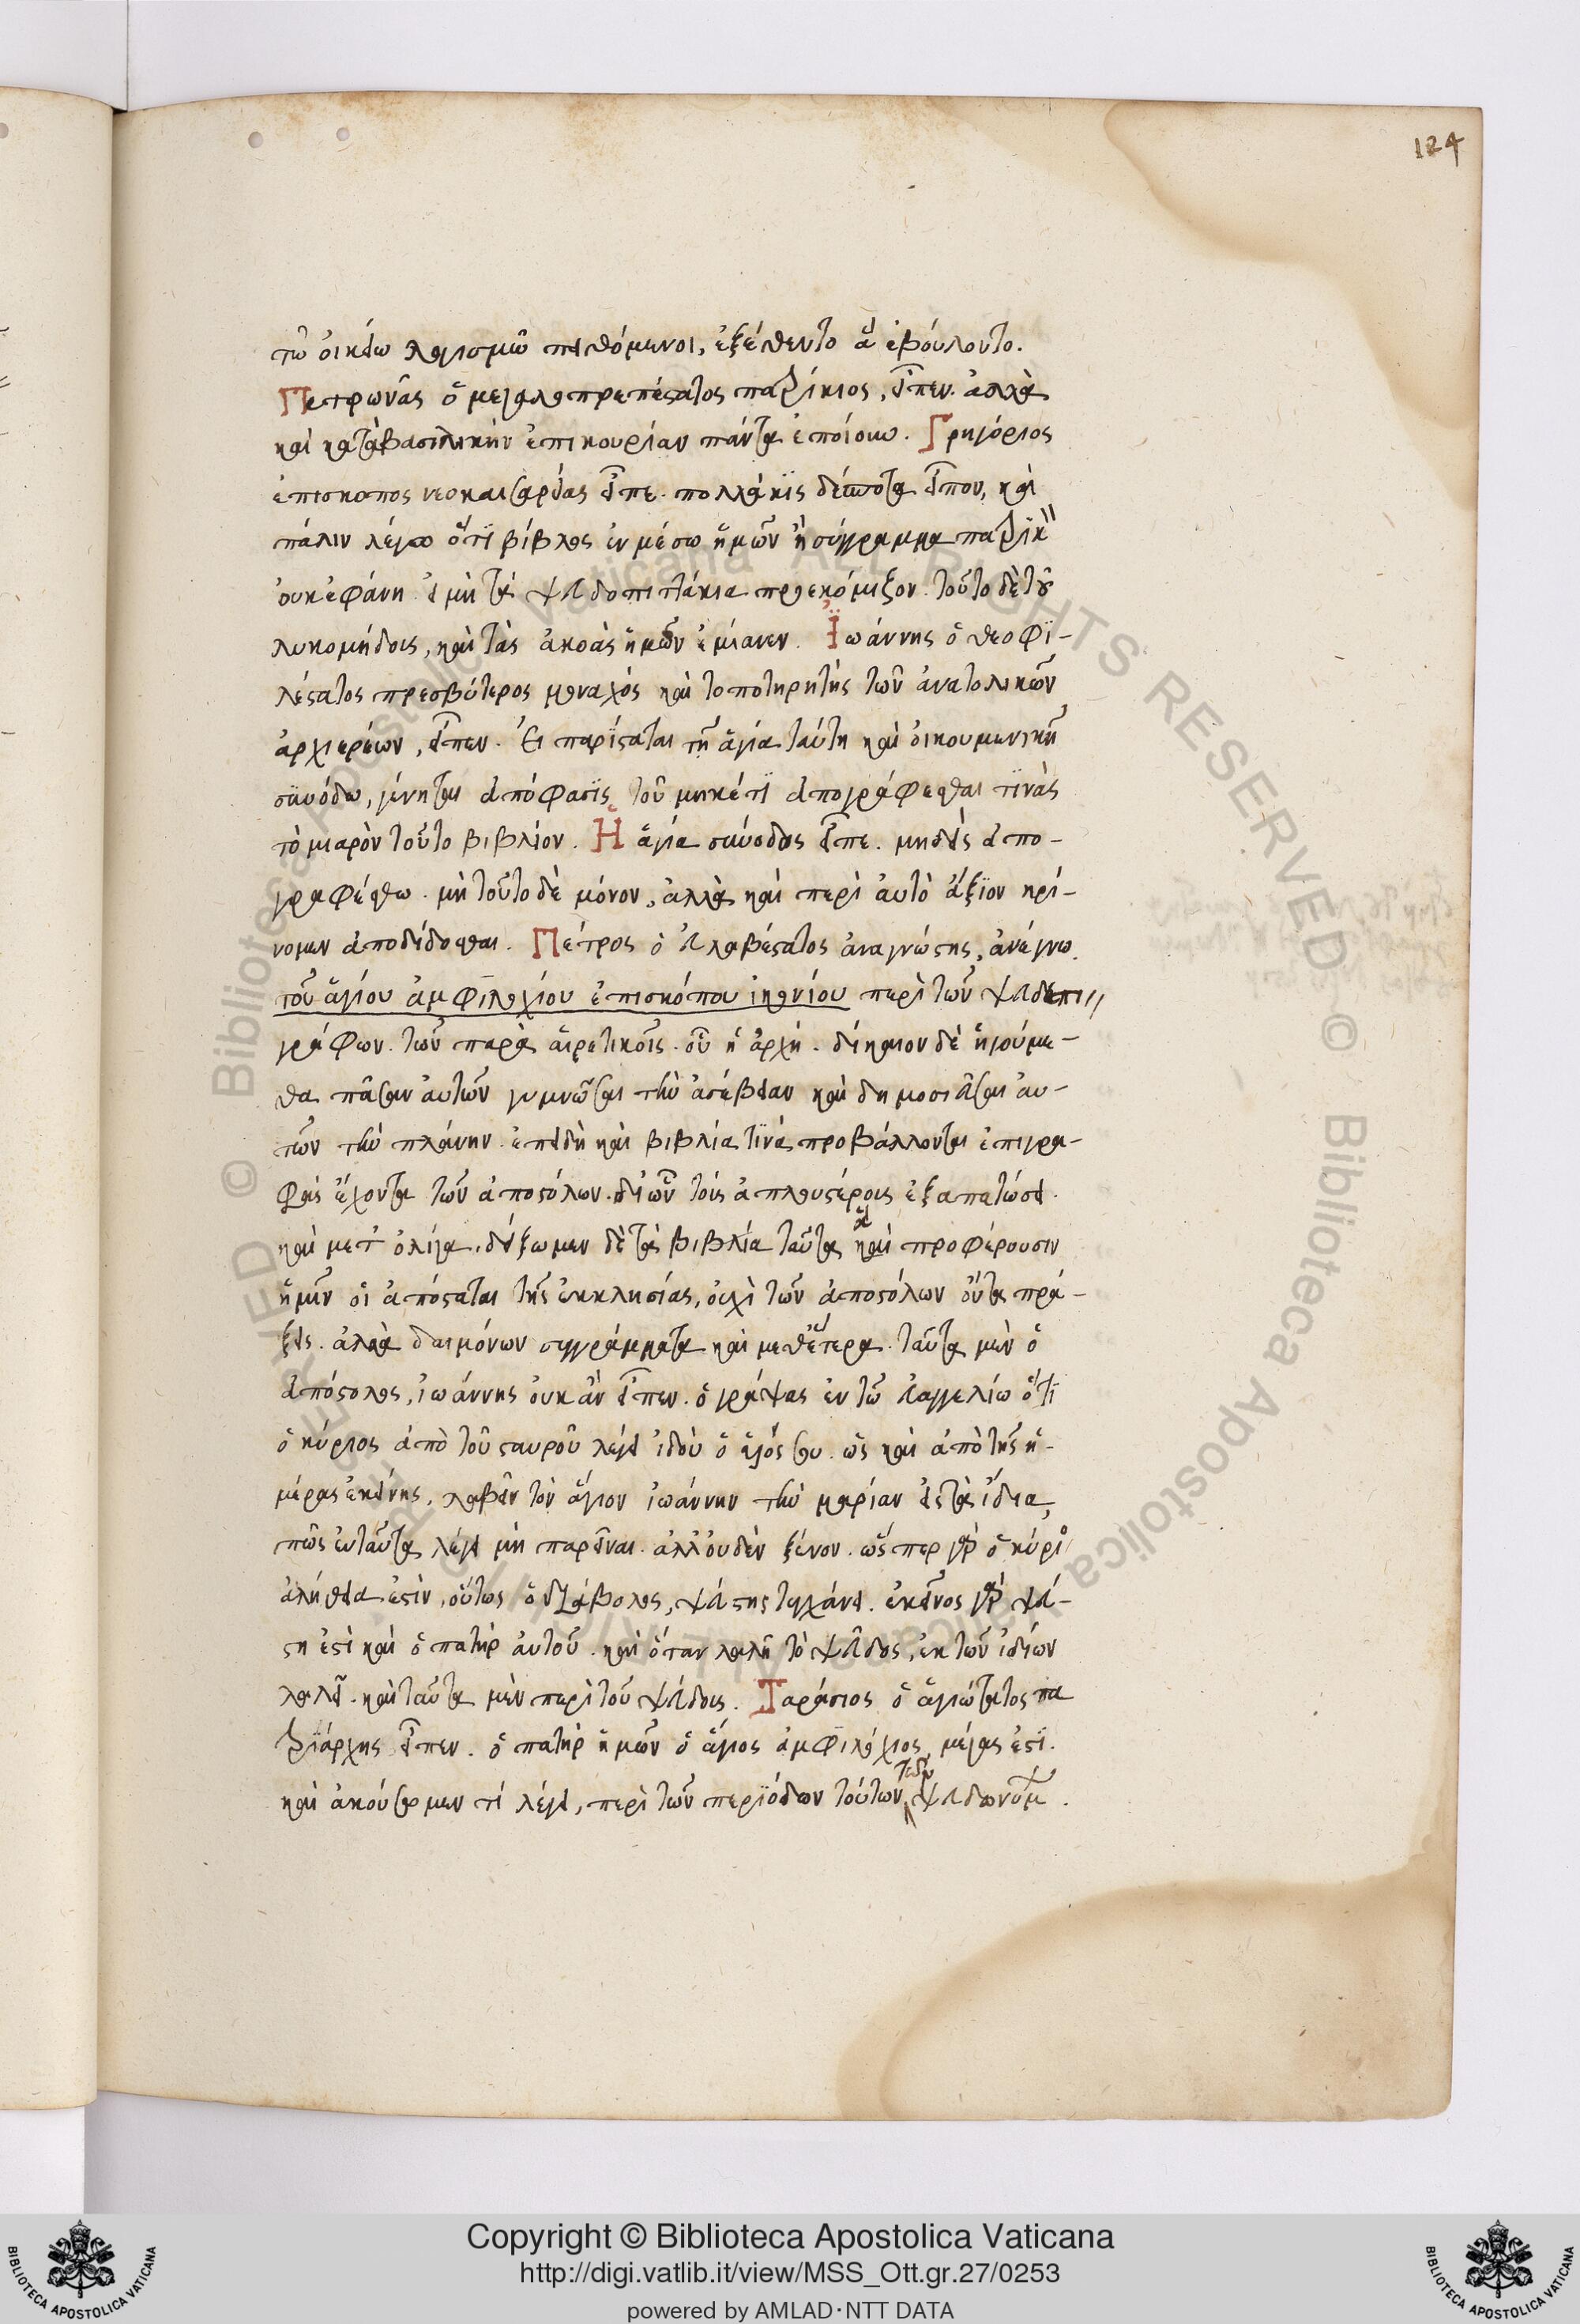 124
τῶ οἰκείω λογισμῶ πειθόμενοι, ἐξέθεντο ἃ ἐβούλοντο.
Πετρωνᾶς ὁ μεγαλοπρεπέστατος πατρίκιος, εἶπεν. ἀλλὰ
καὶ κατὰ βασιλικὴν ἐπικουρίαν πάντα ἐποίουν. Γρηγόριος
ἐπίσκοπος νεοκαισαρείας εἶπε. πολλάκις δέσποτα εἶπον, καὶ
πάλιν λέγω ὅτι βίβλος ἐν μέσω ἡμῶν ἢ σύγγραμμα πατρικ
οὐκ ἐφάνη. εἰ μὴ τὰ ψευδοπιττάκια προεκόμιζον. τοῦτο δὲ τοῦ
λυκομήδους, καὶ τὰς ἀκοὰς ἡμῶν ἐμίανεν. Ἰωάννης ὁ θεοφι-
λέστατος πρεσβύτερος μοναχός καὶ τοποτηρητὴς τῶν ἀνατολικῶν
ἀρχιερέων, εἶπεν. Εἰ παρίσταται τῇ ἁγία ταύτη καὶ οἰκουμενικῇ
συνόδω, γένηται ἀπόφασις τοῦ μηκέτι ἀπογράφεσθαι τινὰς
τὸ μιαρὸν τοῦτο βιβλίον. Ἡ ἁγία σύνοδος εἶπε. μηδεὶς ἀπο-
γραφέσθω. μὴ τοῦτο δὲ μόνον, ἀλλὰ καὶ πυρὶ αὐτὸ ἄξιον κρί-
νομεν ἀποδίδοσθαι. Πέτρος ὁ εὐλαβέστατος ἀναγνώστης, ἀνέγνω.
τοῦ ἁγίου ἀμφιλοχίου ἐπισκόπου ἰκονίου περὶ τῶν ψευδεπι
γράφων. τῶν παρὰ αἱρετικοῖς. οὗ ἡ ἀρχή. δίκαιον δὲ ἡγούμε-
θα πᾶσαν αὐτῶν γυμνῶσαι τὴν ἀσέβειαν καὶ δημοσιεῦσαι αὐ-
τῶν τὴν πλάνην. ἐπειδὴ καὶ βιβλία τινὰ προβάλλονται ἐπιγρα-
φὰς ἔχοντα τῶν ἀποστόλων. δι' ὧν τοὺς ἁπλουστέρους ἐξαπατῶσι.
καὶ μετ' ὀλίγα. δείξωμεν δὲ τὰ βιβλία ταῦτα ἃ καὶ προφέρουσιν
ἡμῖν οἱ ἀπόσταται τῆς ἐκκλησίας, οὐχὶ τῶν ἀποστόλων ὄντα πρά-
ξεις. ἀλλὰ δαιμόνων συγγράμματα καὶ μεθ' ἕτερα. ταῦτα μὲν ὁ
ἀπόστολος, ἰωάννης οὐκ ἂν εἶπεν. ὁ γράψας ἐν τῶ εὐαγγελίω ὅτι
ὁ κύριος ἀπὸ τοῦ σταυροῦ λέγει ἰδοὺ ὁ υἱός σου. ὡς καὶ ἀπὸ τῆς ἡ-
μέρας ἐκείνης, λαβεῖν τὸν ἅγιον ἰωάννην τὴν μαρίαν εἰς τὰ ἴδια,
πῶς ἐνταῦθα λέγει μὴ παρεῖναι. ἀλλ' οὐδὲν ξένον. ὥσπερ γὰρ ὁ κύριο
ἀλήθεια ἐστὶν, οὕτως ὁ διάβολος, ψεύστης τυγχάνει. ἐκεῖνος γὰρ ψεύ-
στη ἐστὶ καὶ ὁ πατὴρ αὐτοῦ. καὶ ὅταν λαλῇ τὸ ψεῦδος, ἐκ τῶν ἰδίων
λαλεῖ. καὶ ταῦτα μὲν περὶ τοῦ ψεύδους. Ταράσιος ὁ ἁγιώτατος πα
τριάρχης εἶπεν. ὁ πατὴρ ἡμῶν ὁ ἅγιος ἀμφιλόχιος, μέγας ἐστί.
καὶ ἀκούσωμεν τί λέγει, περὶ τῶν περιόδων τούτων τῶν ψευδωνύμ.
Copyright © Biblioteca Apostolica Vaticana
http://digi.vatlib.it/view/MSS_Ott.gr.27/0253
powered by AMLAD·NTT DATA
BIBLIOTECA APOSTOLICA VATICANA
BIBLIOTECA APOSTOLICA VATICANA
© Biblioteca Apostolica Vaticana ALL RIGHTS RESERVED © Biblioteca Apostolica Vaticana ALL RIGHTS RESERVED